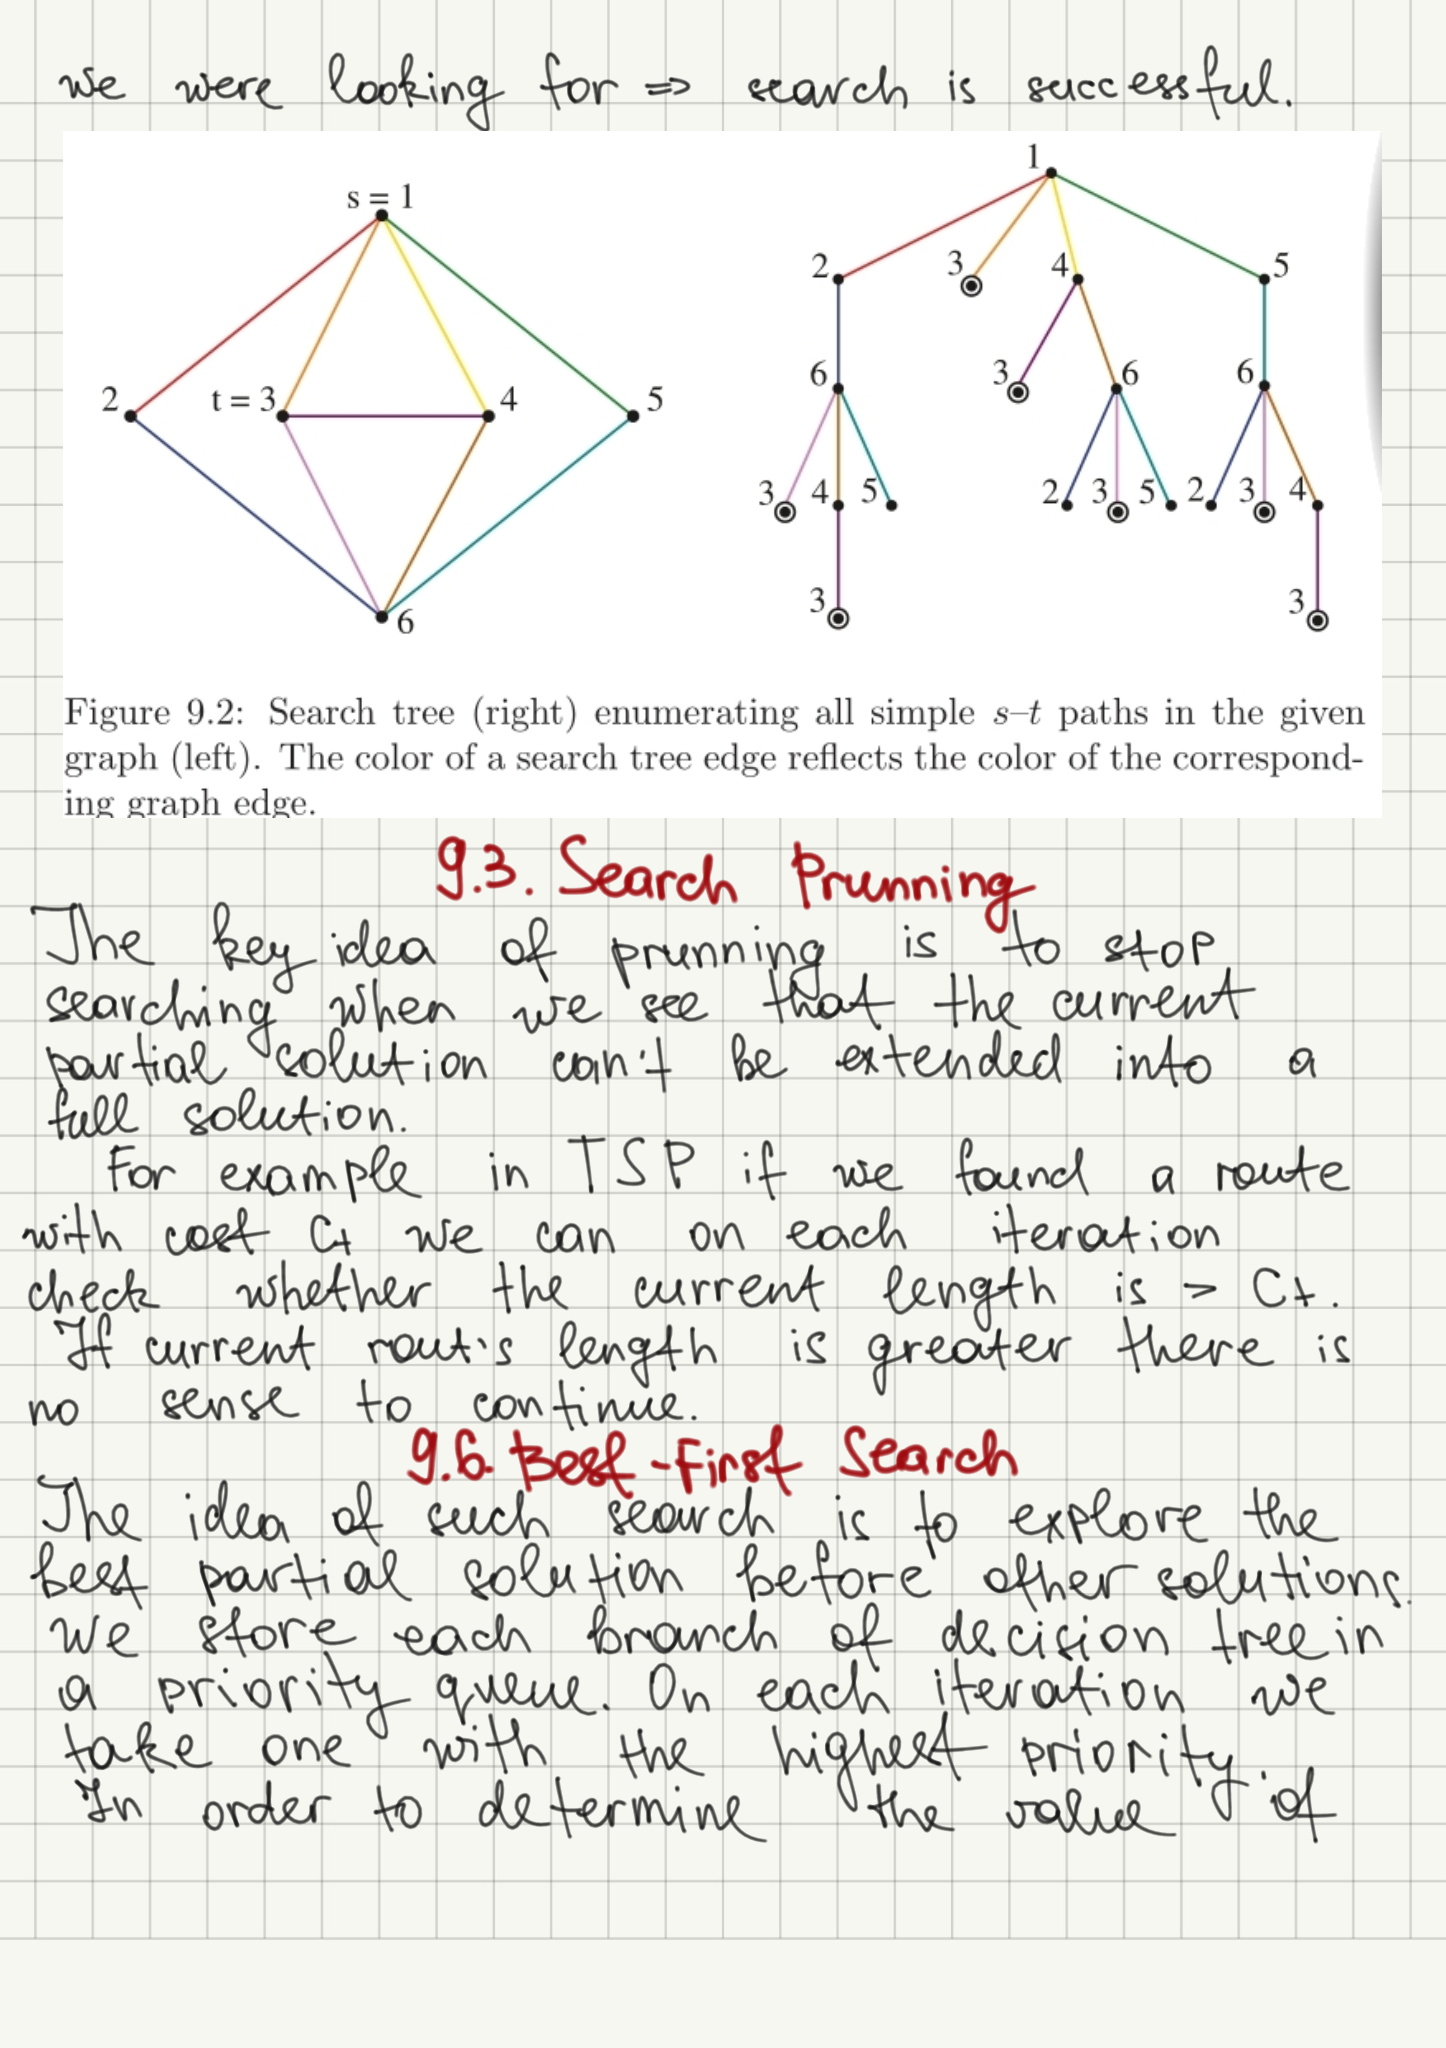 we were looking for => search is successful.
s = 1
2
t = 3
4
5
6
1
2
3
4
5
6
3
6
6
3
4
5
2
3
5
2
3
4
3
3
Figure 9.2: Search tree (right) enumerating all simple s–t paths in the given
graph (left). The color of a search tree edge reflects the color of the correspond-
ing graph edge.
9.3. Search Prunning
The key idea of prunning is to stop
searching when we see that the current
partial solution can't be extended into a
full solution.
For example in TSP if we found a route
with cost Ct we can on each iteration
check whether the current length is > Ct.
If current rout's length is greater there is
no sense to continue.
9.6. Best-First Search
The idea of such search is to explore the
best partial solution before other solutions.
we store each branch of decision tree in
a priority queue. On each iteration we
take one with the highest priority.
In order to determine the value of